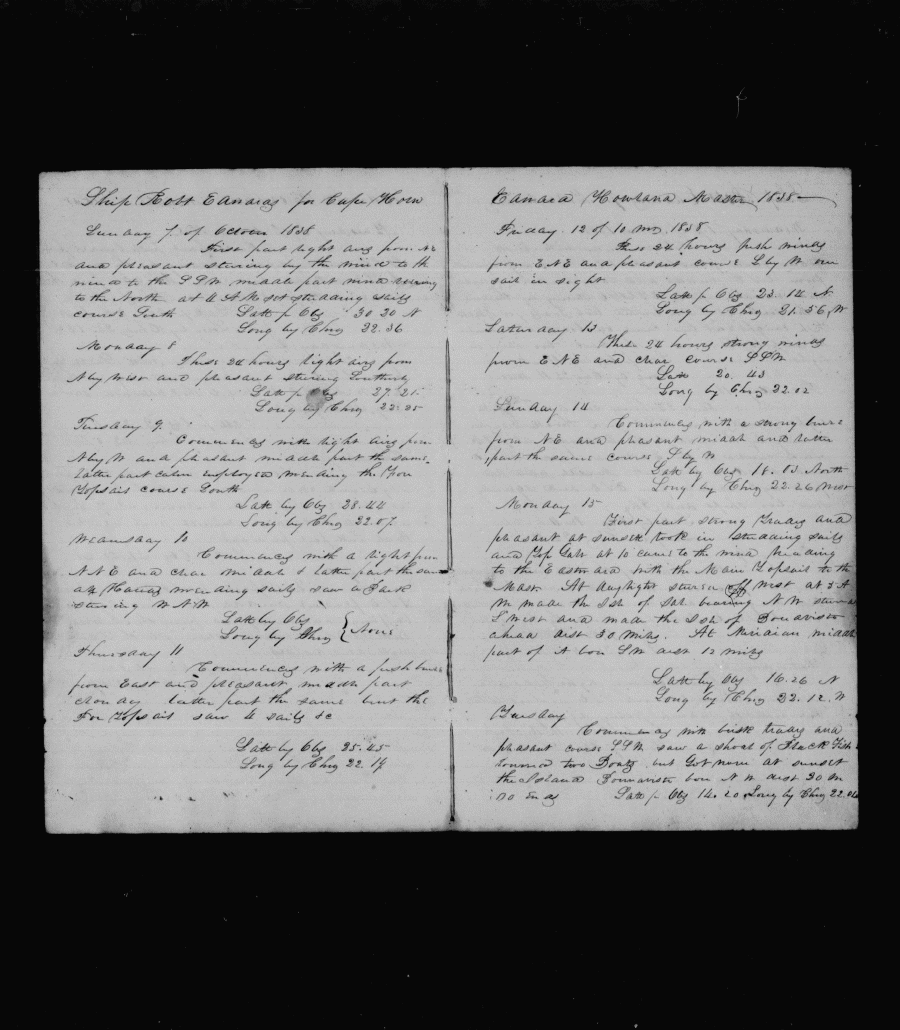 Ship Robt Edwards for Cape Horn
Sunday 7 of October 1838
First part light airs from NE
and pleasant stearing by the wind to th
wind to the SSW middle part wind veering
to the North at 4 AM set studding sails
course South Latt p Obs 30 30 N
Long by Chro 22.36
Monday 8
These 24 hours light airs from
N by West and pleasant stearing Southerly
Latt p Obs 27.21
Long by Chro 22.25
Tuesday 9
Commences with light airs from
N by W and pleasant middle part the same
latter part calm employed mending the Fore
Topsail course South
Latt by Obs 28.44
Long by Chro 22.07
Wednesday 10
Commences with a light from
NNE and clear middle & latter part the same
all Hands mending sails saw a Bark
stearing WNW
Latt by Obs
Long by Chro } None
Thursday 11
Commences with a fresh breeze
from East and pleasant middle part
cloudy latter part the same bent the
For Topsail saw 4 sails &c
Latt by Obs 25.45
Long by Chro 22.19
Edward Howland Master 1838
Friday 12 of 10 mo 1838
These 24 hours fresh winds
from ENE and pleasant course S by W one
sail in sight
Latt p Obs 23.14 N
Long by Chro 21.56 W
Saturday 13
These 24 hours strong winds
from ENE and clear course SSW
Latt 20.43
Long by Chro 22.02
Sunday 14
Commences with a strong breeze
from NE and pleasant middle and latter
part the same course S by W
Latt by Obs 18.13 North
Long by Chro 22.26 West
Monday 15
First part strong Trades and
pleasant at sunsett took in studding sails
and Top Galt at 10 came to the wind heading
to the Eastward with the Main Topsail to the
Mast. At daylight steered off West at 5 A
M made the Isle of Sal bearing NW steered
S West and made the Isle of Bonavista
ahead dist 30 miles. At Meridian middle
part of it bore SW dist 12 miles
Latt by Obs 16.26 N
Long by Chro 22.12 W
Tuesday
Commences with brisk trades and
pleasant course SSW saw a shoal of Black Fish
lowered two Boats but Got none at sunset
the Island Bonavista bore NW dist 20 M
so Ends Latt p Obs 14.20 Long by Chro 22.06